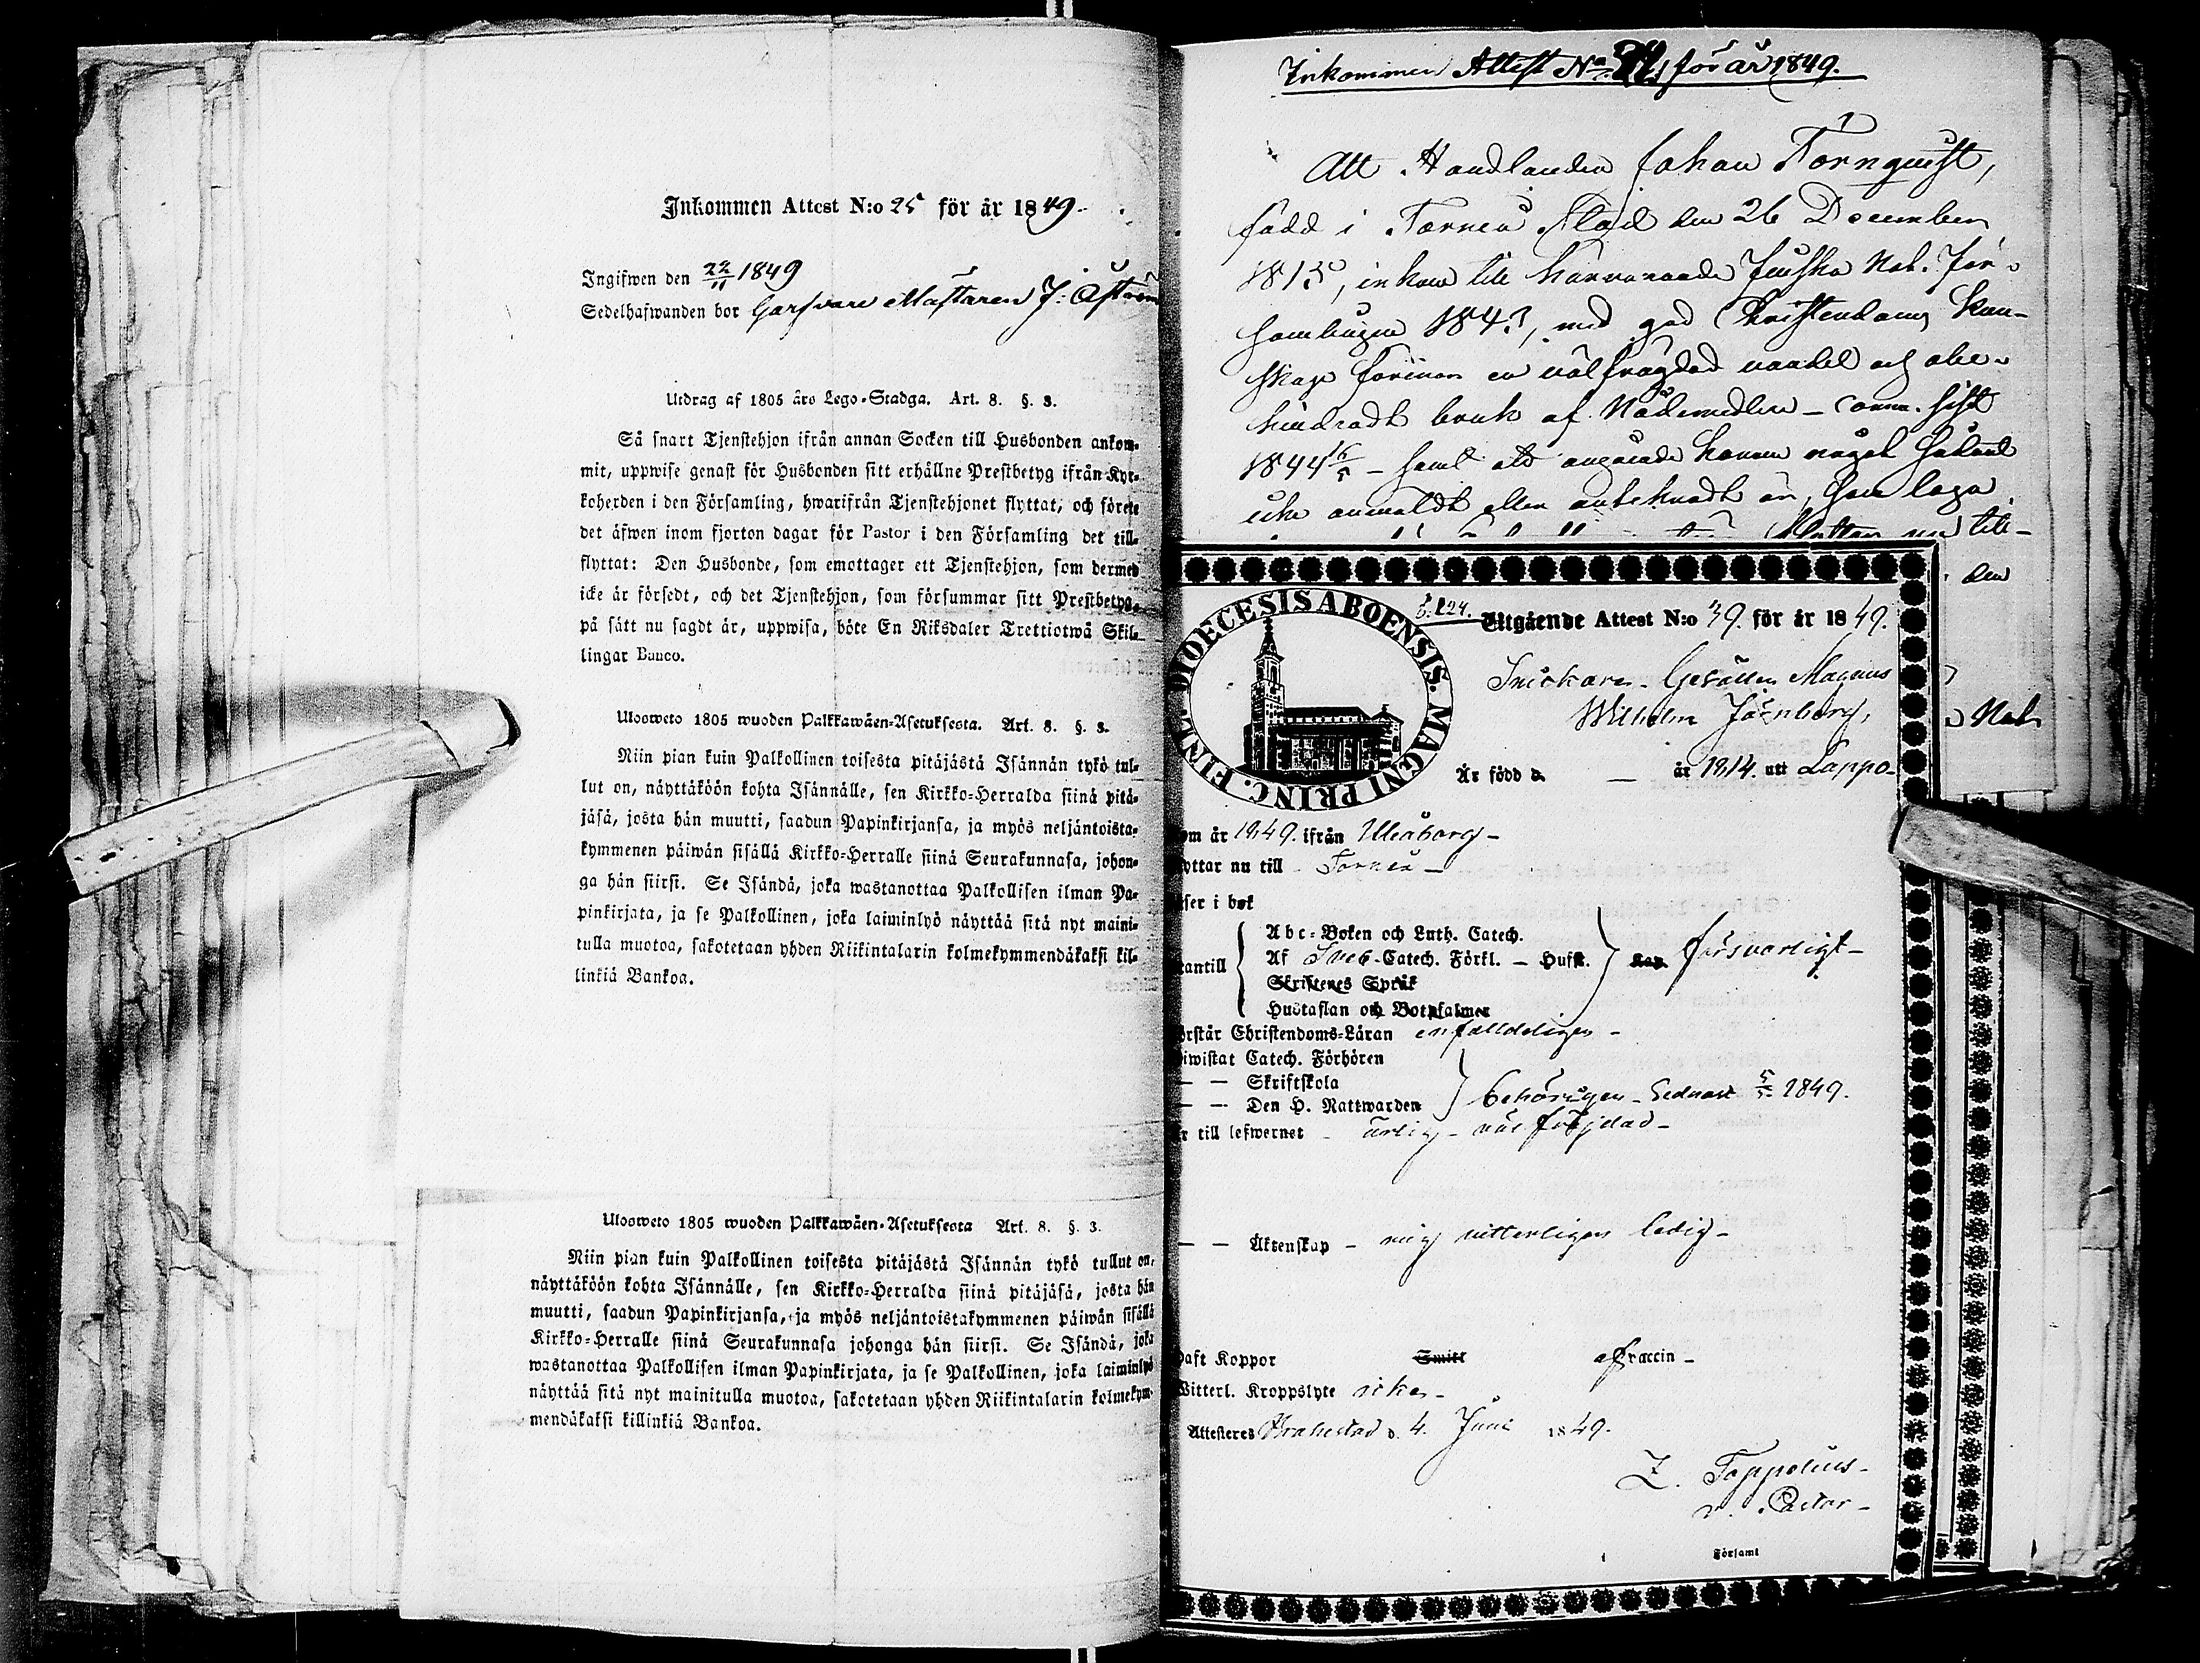 Inkommen Attest N:o 25 för år 1849.
Ingifwen den 22/11 1849
Sedelhafwanden bor Garfvare Mästaren J: Åström
Utdrag af 1805 års Lego-Stadga. Art. 8. §. 3.
Så snart Tjenstehjon ifrån annan Socken till Husbonden ankom-
mit, uppwise genast för Husbonden sitt erhållne Prestbetyg ifrån Kyr-
koherden i den Församling, hwarifrån Tjenstehjonet flyttat, och förete
det äfwen inom fjorton dagar för Pastor i den Församling det till-
flyttat: Den Husbonde, som emottager ett Tjenstehjon, som dermed
icke är försedt, och det Tjenstehjon, som försummar sitt Prestbetyg,
på sätt nu sagdt är, uppwisa, böte En Riksdaler Trettiotwå Skil-
lingar Banco.
Ulosweto 1805 wuoden Palkkawäen-Asetuksesta. Art. 8. §. 3.
Niin pian kuin Palkollinen toisesta pitäjästä Isännän tykö tul-
lut on, näyttäköön kohta Isännälle, sen Kirkko-Herralda siinä pitä-
jäsä, josta hän muutti, saadun Papinkirjansa, ja myös neljäntoista-
kymmenen päiwän sisällä Kirkko-Herralle siinä Seurakunnasa, johon-
ga hän siirsi. Se Isändä, joka wastanottaa Palkollisen ilman Pa-
pinkirjata, ja se Palkollinen, joka laiminlyö näyttää sitä nyt maini-
tulla muotoa, sakotetaan yhden Riikintalarin kolmekymmendäkaksi kil-
linkiä Bankoa.
Ulosweto 1805 wuoden Palkkawäen-Asetuksesta Art. 8. §. 3.
Niin pian kuin Palkollinen toisesta pitäjästä Isännän tykö tullut on,
näyttäköön kohta Isännälle, sen Kirkko-Herralda siinä pitäjäsä, josta hän
muutti, saadun Papinkirjansa, ja myös neljäntoistakymmenen päiwän sisällä
Kirkko-Herralle siinä Seurakunnasa johonga hän siirsi. Se Isändä, joka
wastanottaa Palkollisen ilman Papinkirjata, ja se Palkollinen, joka laiminlyö
näyttää sitä nyt mainitulla muotoa, sakotetaan yhden Riikintalarin kolmekym-
mendäkaksi killinkiä Bankoa.
Inkommen Attest No för år 1849.
Att Handlanden Johan Törnquist,
född i Torneå Stad den 26 December
1815, inkom till härvarande Finska Nat. För-
samlingen 1843, med god Christendoms kun-
skap förenar en välfrägdad vandel och obe-
hindradt bruk af Nådemedlen - comm. sist
1844 16/5 - samt att angående honom något hinder
icke anmäldt eller antecknadt är,
till-
den
Nat.
DIOECESIS ABOENSIS. MAGNI PRINC. FINL.
124. Utgående Attest N:o 39. för år 1849.
Snickare-Gesällen Magnus
Wilhelm Jernberg,
Är född d. — år 1814. uti Lappo-
om år 1849. ifrån Uleåborg-
yttar nu till Torneå-
ser i bok
Abc-Boken och Luth. Catech.
antill Af Sveb-Catech. Förkl. — Hust. Kap. försvarligt-
Skriftenes Språk
Hustaflan och Botpsalmer
örstår Christendoms-Läran enfalldeligen-
iwistat Catech. Förhören
— — Skriftskola
— — Den H. Nattwarden behörigen- Sednast 5/5 1849.
r till lefwernet - ärlig - väl frejdad-
— — Äktenskap - mig vitterligen ledig-
aft Koppor Smitt af Vaccin-
Witterl. Kroppslyte icke-
Attesteres Brahestad d. 4. Juni 1849.
Z. Toppelius-
v. Pastor-
Församl